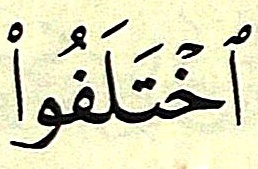 ٱخۡتَلَفُواْ